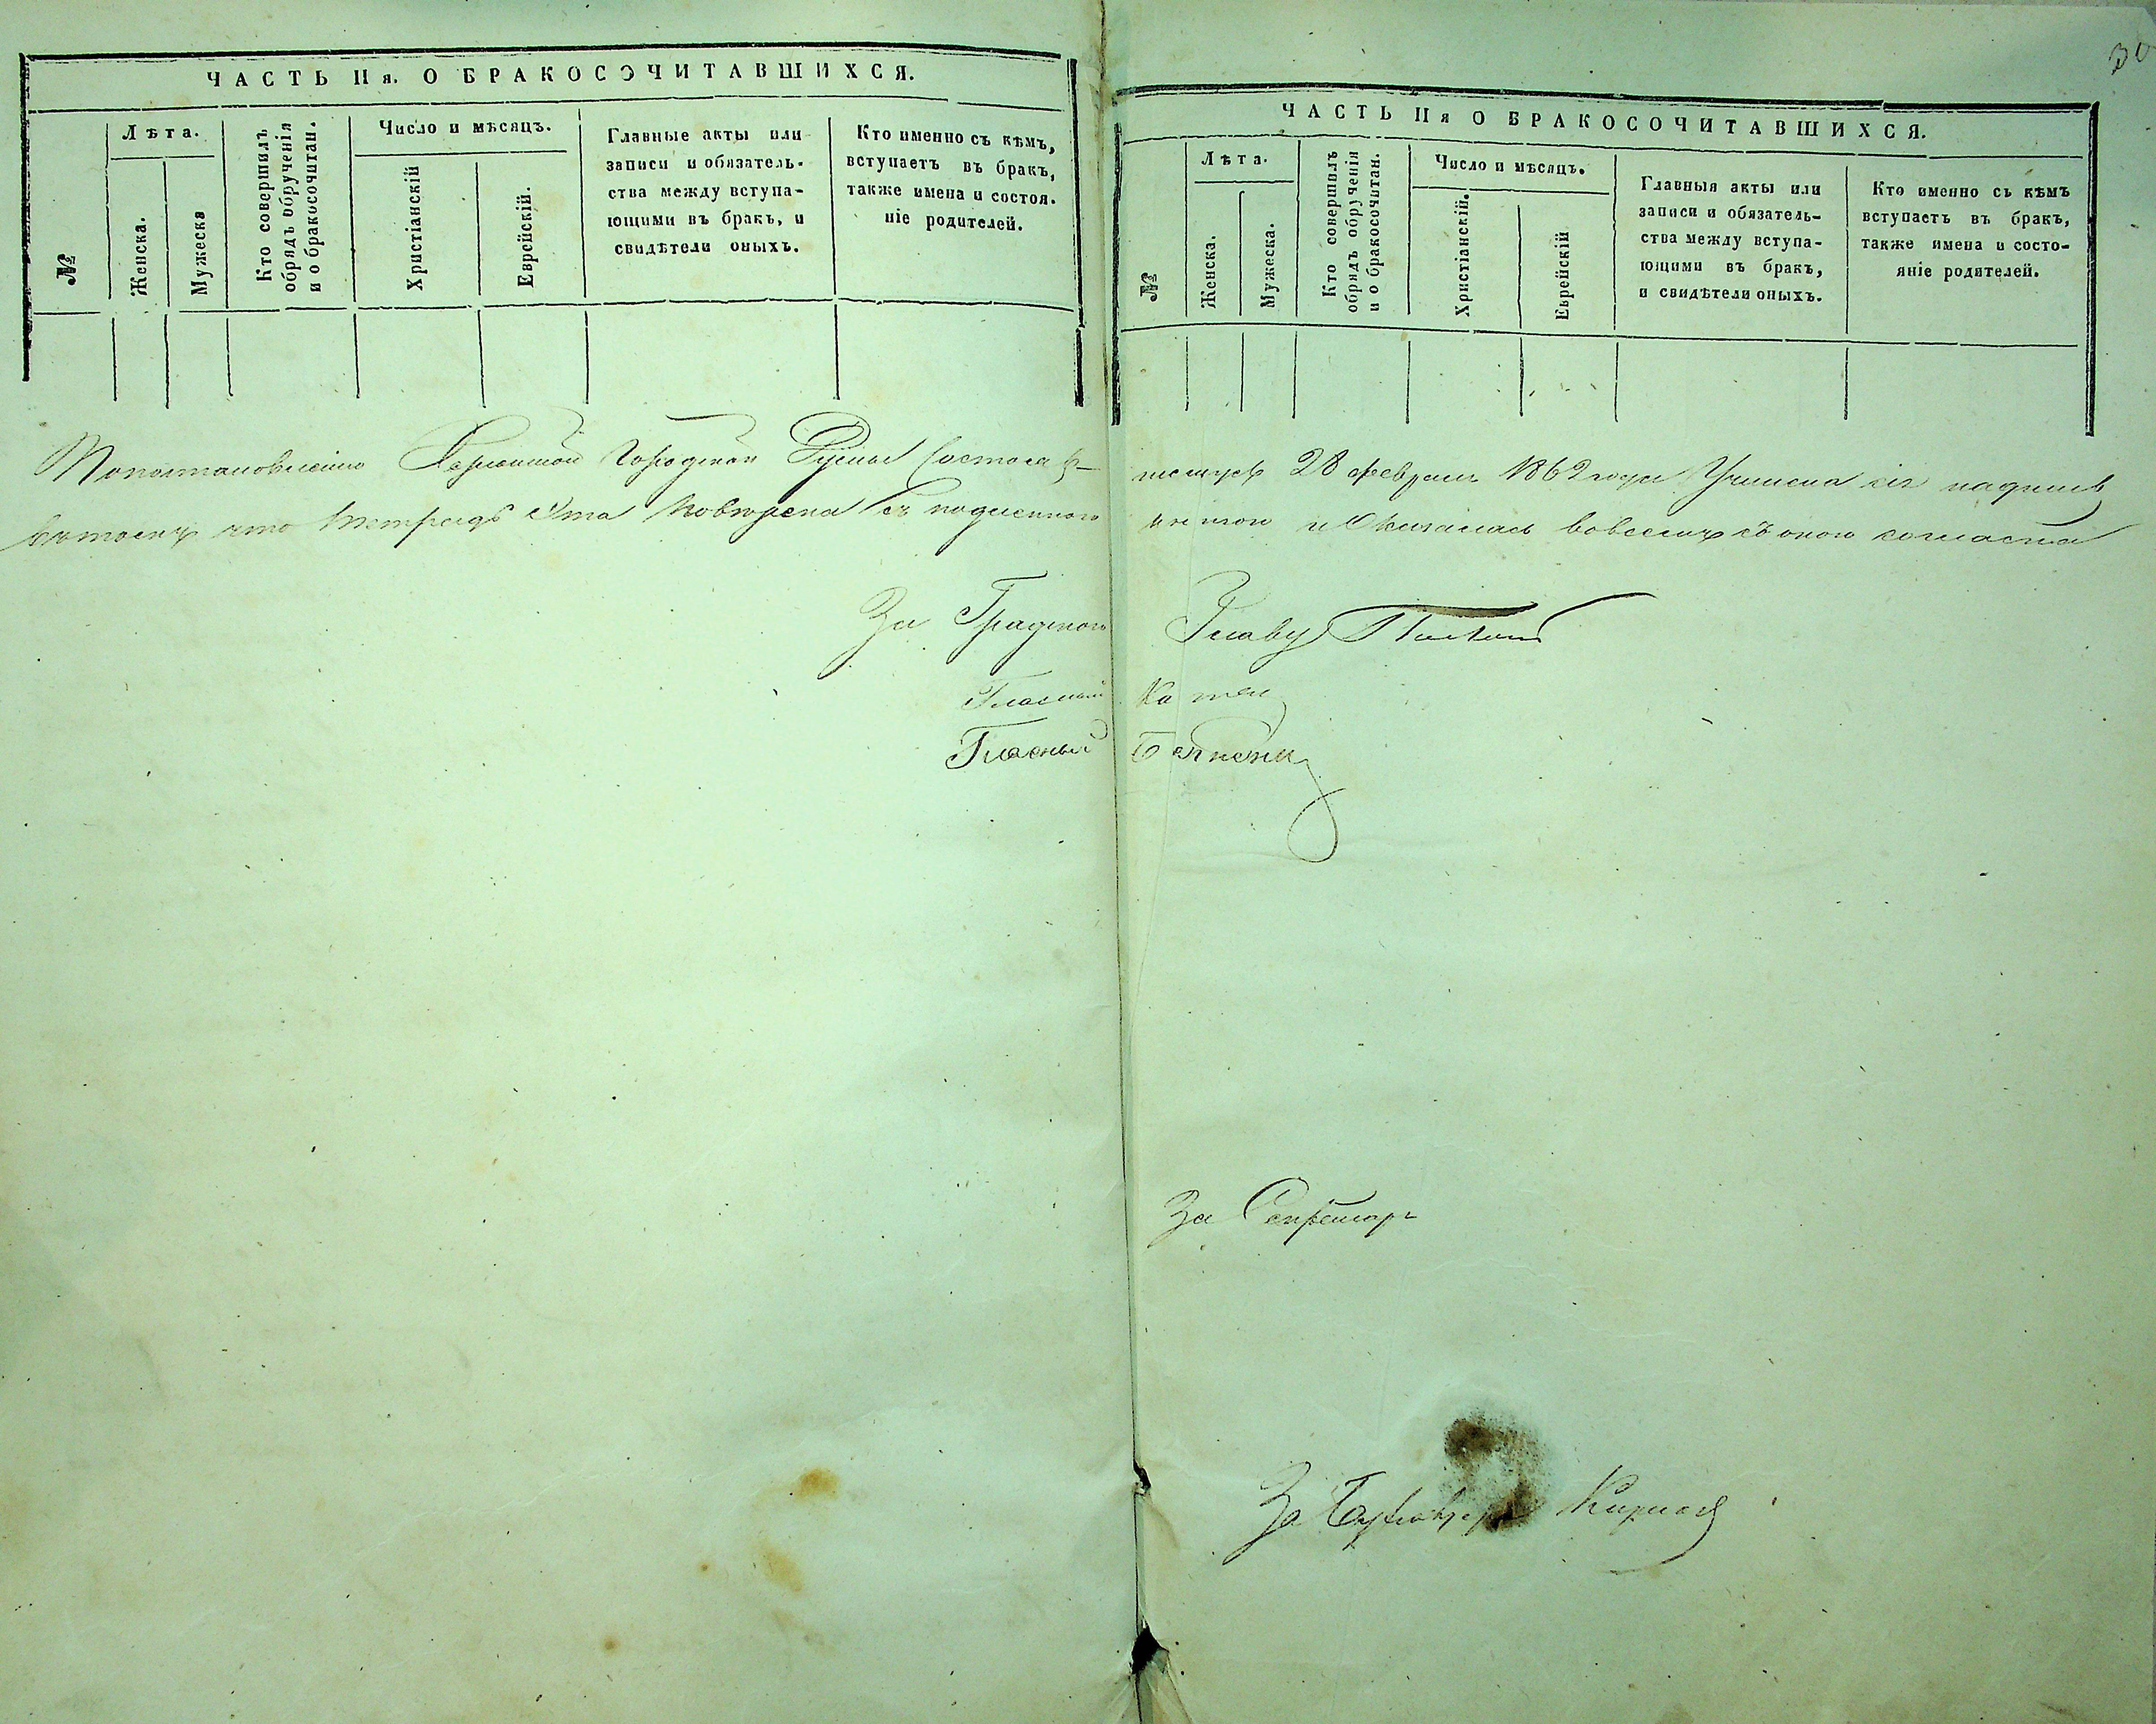 ЧАСТЬ IIя. О БРАКОСОЧИТАВШИХСЯ.
№
Лѣта.
Женска.
Мужеска
Кто совершилъ
обрядъ обрученія
и о бракосочитан.
Число и мѣсяцъ.
Христіанскій
Еврейскій.
Главные акты или
записи и обязатель-
ства между вступа-
ющими въ бракъ, и
свидѣтели оныхъ.
Кто именно съ кѣмъ,
вступаетъ въ бракъ,
также имена и состоя-
ніе родителей.
ЧАСТЬ IIя О БРАКОСОЧИТАВШИХСЯ.
№
Лѣта.
Женска.
Мужеска.
Кто совершилъ
обрядъ обрученія
и о бракосочитан.
Число и мѣсяцъ.
Христіанскій.
Еврейскій
Главныя акты или
записи и обязатель-
ства между вступа-
ющими въ бракъ,
и свидѣтели оныхъ.
Кто именно съ кѣмъ
вступаетъ въ бракъ,
также имена и состо-
яніе родителей.
30
По постановленію Городской Думы состояв- шемуся 28 февраля 1862 года Учинена сія надпись
въ томъ что тетрадь эта повѣрена съ подлинною книгою и Оказалась вовсемъ съ оною согласна
За Градскаго Главу
Гласный
Гласный
За Секретаря
За Бухгалтера